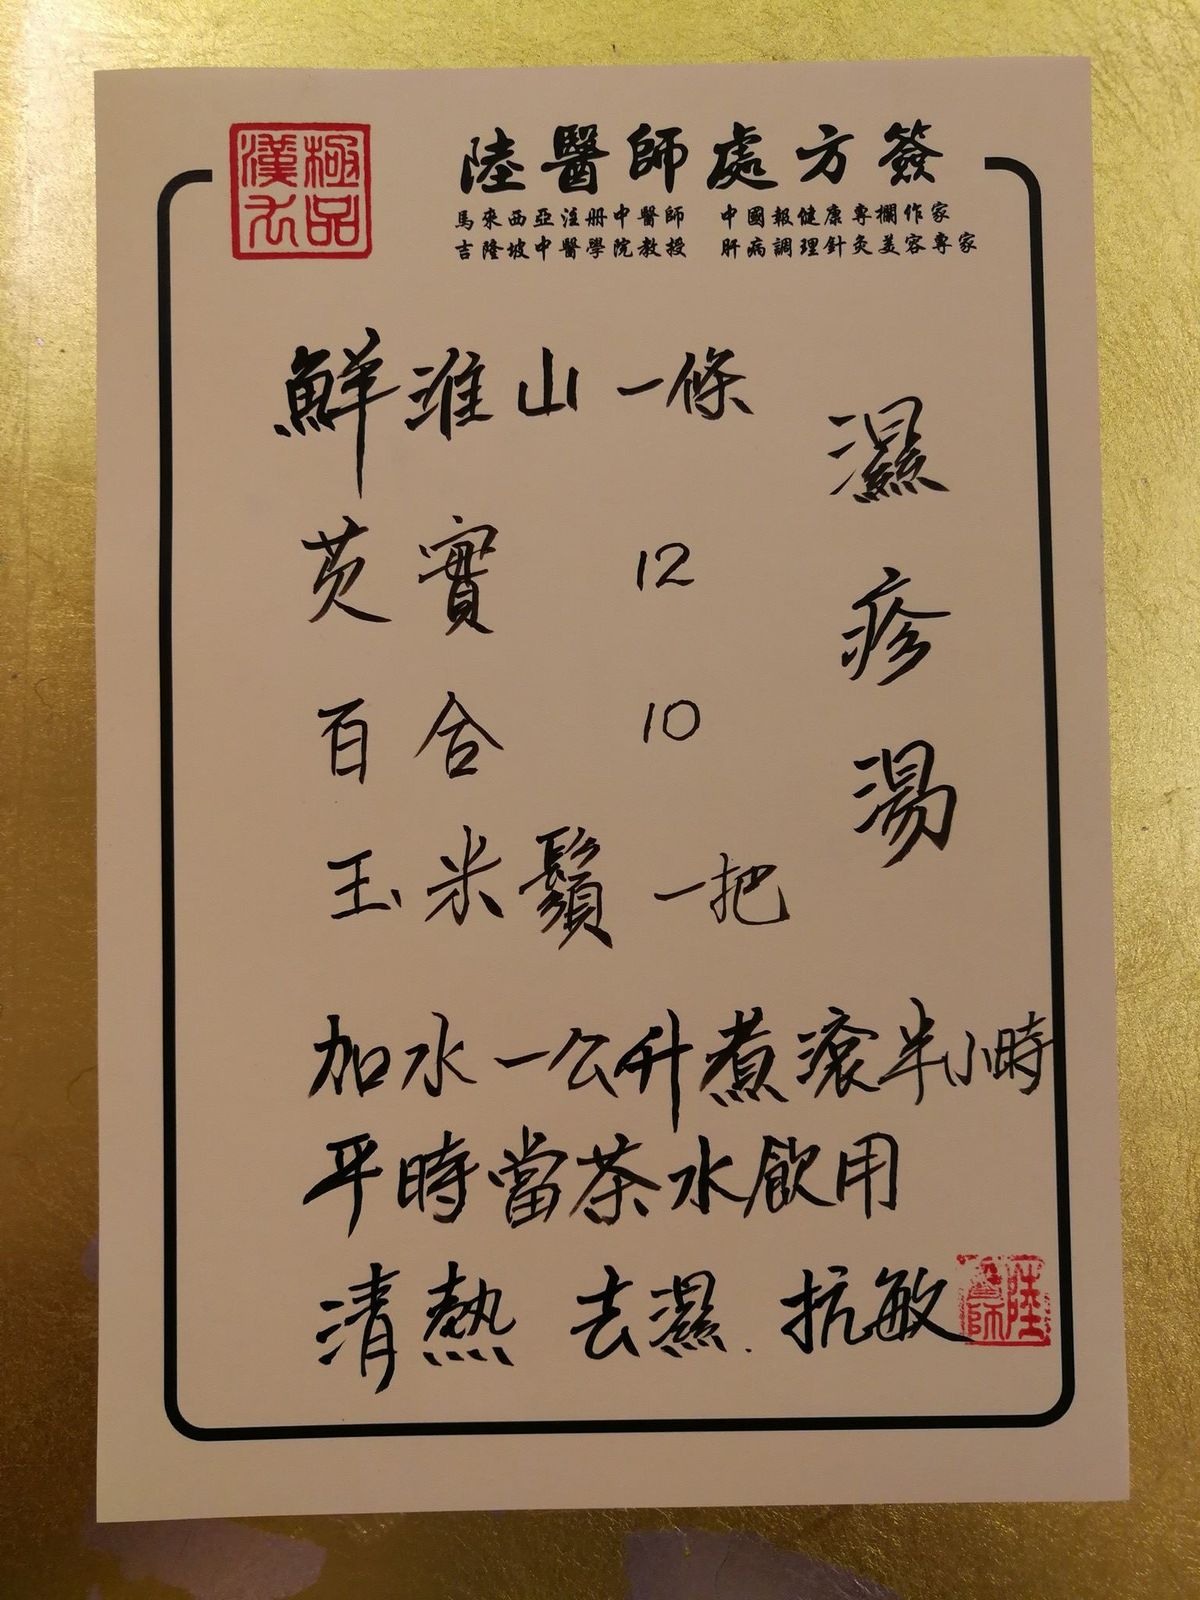 極品
漢方
陸醫師處方簽
馬來西亞注册中醫師 中國報健康專欄作家
吉隆坡中醫學院教授 肝病調理針灸美容專家
濕疹湯
鮮淮山 一條
芡實 12
百合 10
玉米鬚 一把
加水一公升煮滾半小時
平時當茶水飲用
清熱 去濕.抗敏
陸醫師